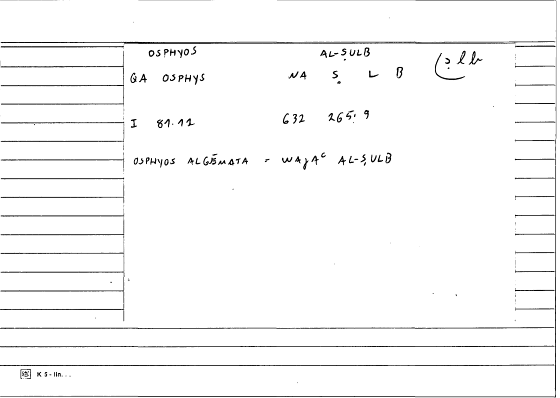 OSPHYOS AL-ṢULB ṣlb
GA OSPHYS NA Ṣ L B
I 81.12 632 265.9
OSPHYOS ALGĒMATA = WAǧAᶜ AL-ṢULB
KS-lin...